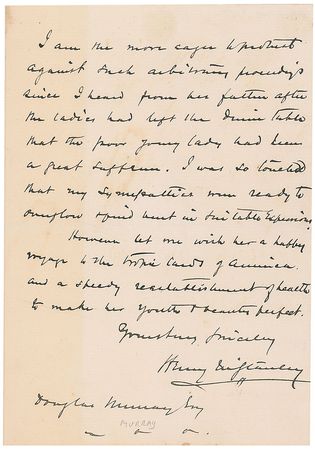 I am the more eager to protest
against such arbitrary proceedings
since I heard from her father after
the ladies had left the dinner table
that the poor young lady had been
a great sufferer. I was so touched
that my sympathies were ready to
overflow & find vent in suitable Expressions.
However let me wish her a happy
voyage to the tropic lands of America.
and a speedy reestablishment of health
to make her youth & beauty perfect.
Yours very sincerely
Henry M Stanley
Douglas Murray Esq
MURRAY